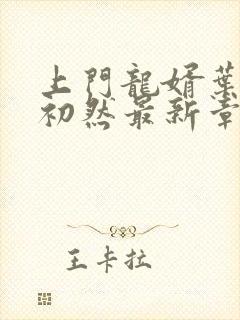 上門龍婿葉
初然最新章
王卡拉